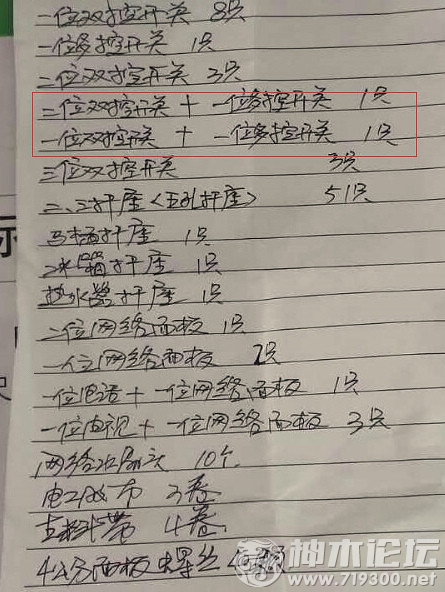 一位双控开关 8只
一位多控开关 1只
二位双控开关 3只
二位双控开关 + 一位多控开关 1只
一位双控开关 + 一位多控开关 1只
三位双控开关 3只
二、三扦座〈五孔扦座〉 51只
马桶扦座 1只
冰箱扦座 1只
热水器扦座 1只
二位网络面板 1只
一位网络面板 2只
一位电话 + 一位网络面板 1只
一位电视 + 一位网络面板 3只
网络水晶头 10个
电工胶布 3卷
生料带 4卷
4公分面板螺丝
神木论坛
www.719300.net